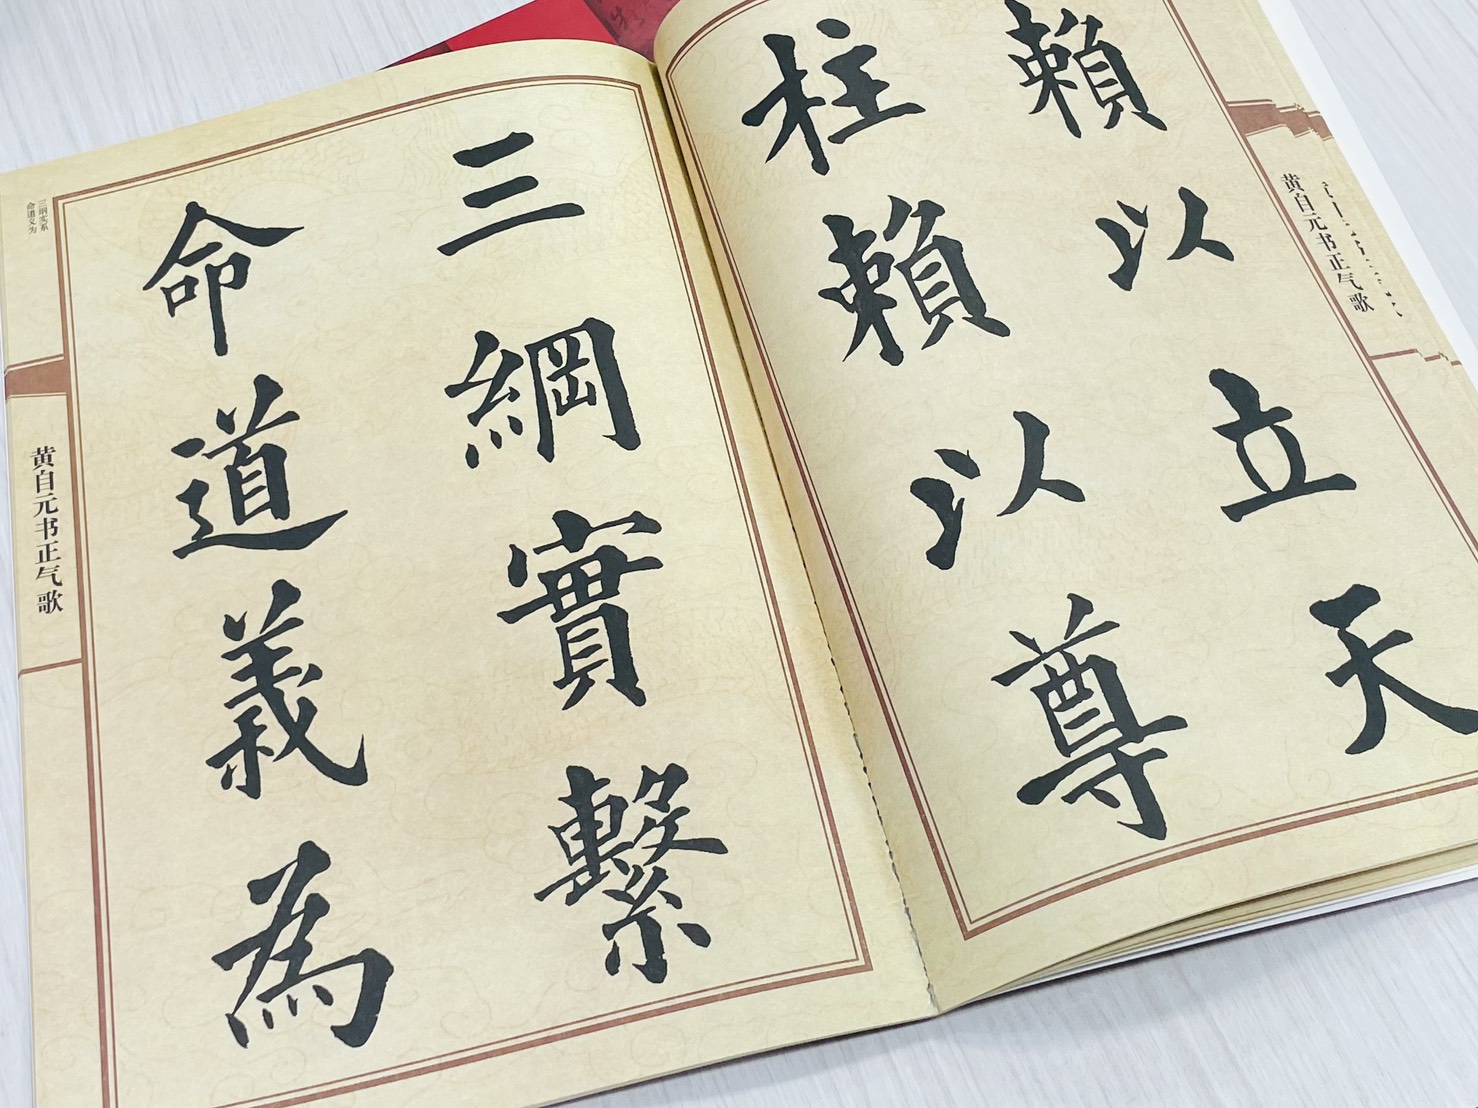 賴以立天
柱賴以尊
三綱實繫
命道義為
黄自元书正气歌
黄自元书正气歌
三纲实系
命道义为